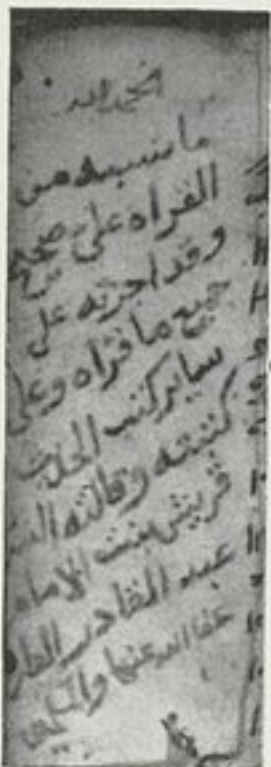 الحمد لله
ما نسبه من
القراه علي صحيح
وقد اجزته على
جميع ما قراه وعلى
ساير كتب الحديث
كتبته وقالته
قريش بنت الامام
عبد القادر
عفا الله عنها